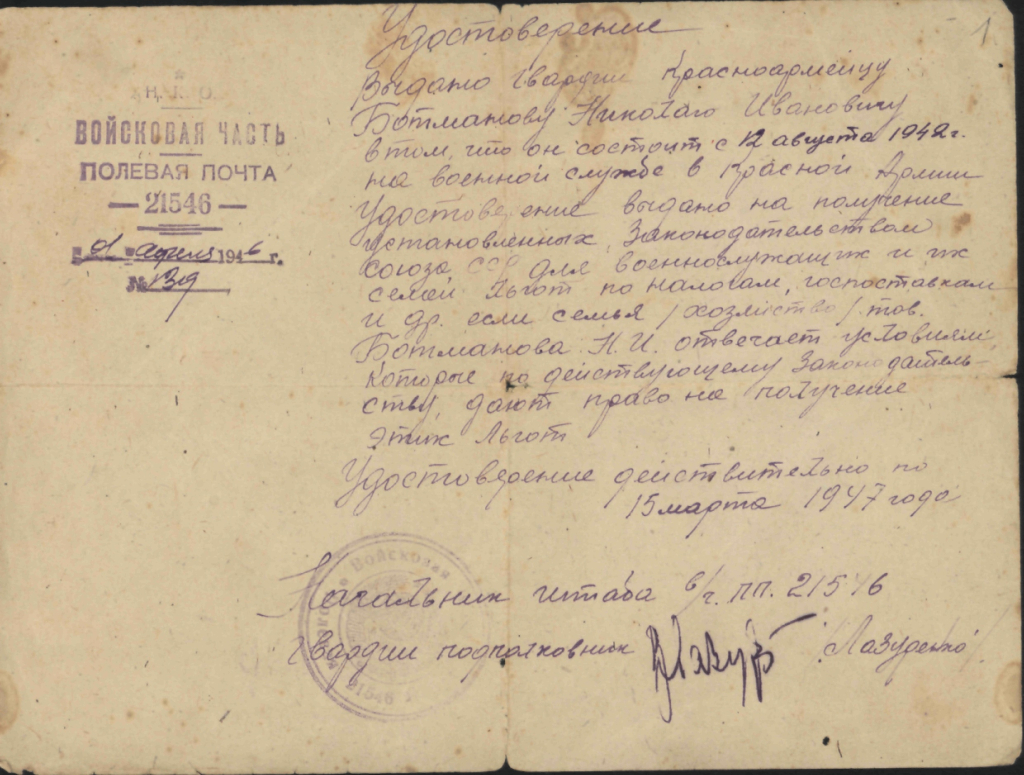 Н.К.О.
ВОЙСКОВАЯ ЧАСТЬ
ПОЛЕВАЯ ПОЧТА
— 21546 —
"01" апреля 1946 г.
№ 139
1
Удостоверение
Выдано гвардии Красноармейцу
Ботманову Николаю Ивановичу
в том, что он состоит с 12 августа 1942 г.
на военной службе в Красной Армии
Удостоверение выдано на получение
установленных Законодательством
Союза ССР для военнослужащих и их
семей льгот по налогам, госпоставкам
и др. если семья /хозяйство/ тов.
Ботманова Н.И. отвечает условиям,
которые по действующему Законодатель-
ству, дают право на получение
этих льгот
Удостоверение действительно по
15 марта 1947 года
Начальник штаба в/ч. пп. 21546
Гвардии подполковник /Лазуренко/
Войсковая
21546